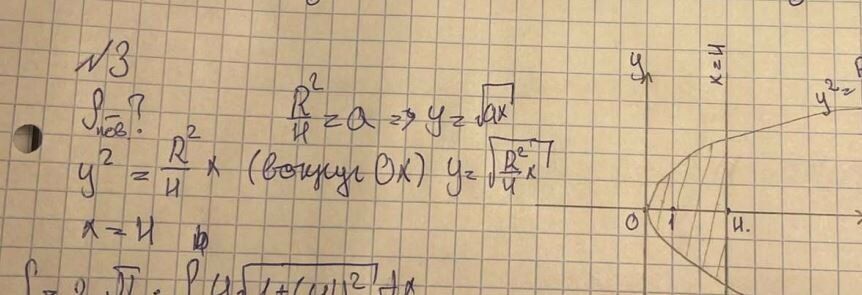 №3
Sпов.?
R²/4 = a => y = √ax
y² = R²/4 x (вокруг Ox) y = √R²/4 x
x = 4
S = 2π · ∫ y√1+(y')² dx
y
x = 4
y² =
0 1 4.